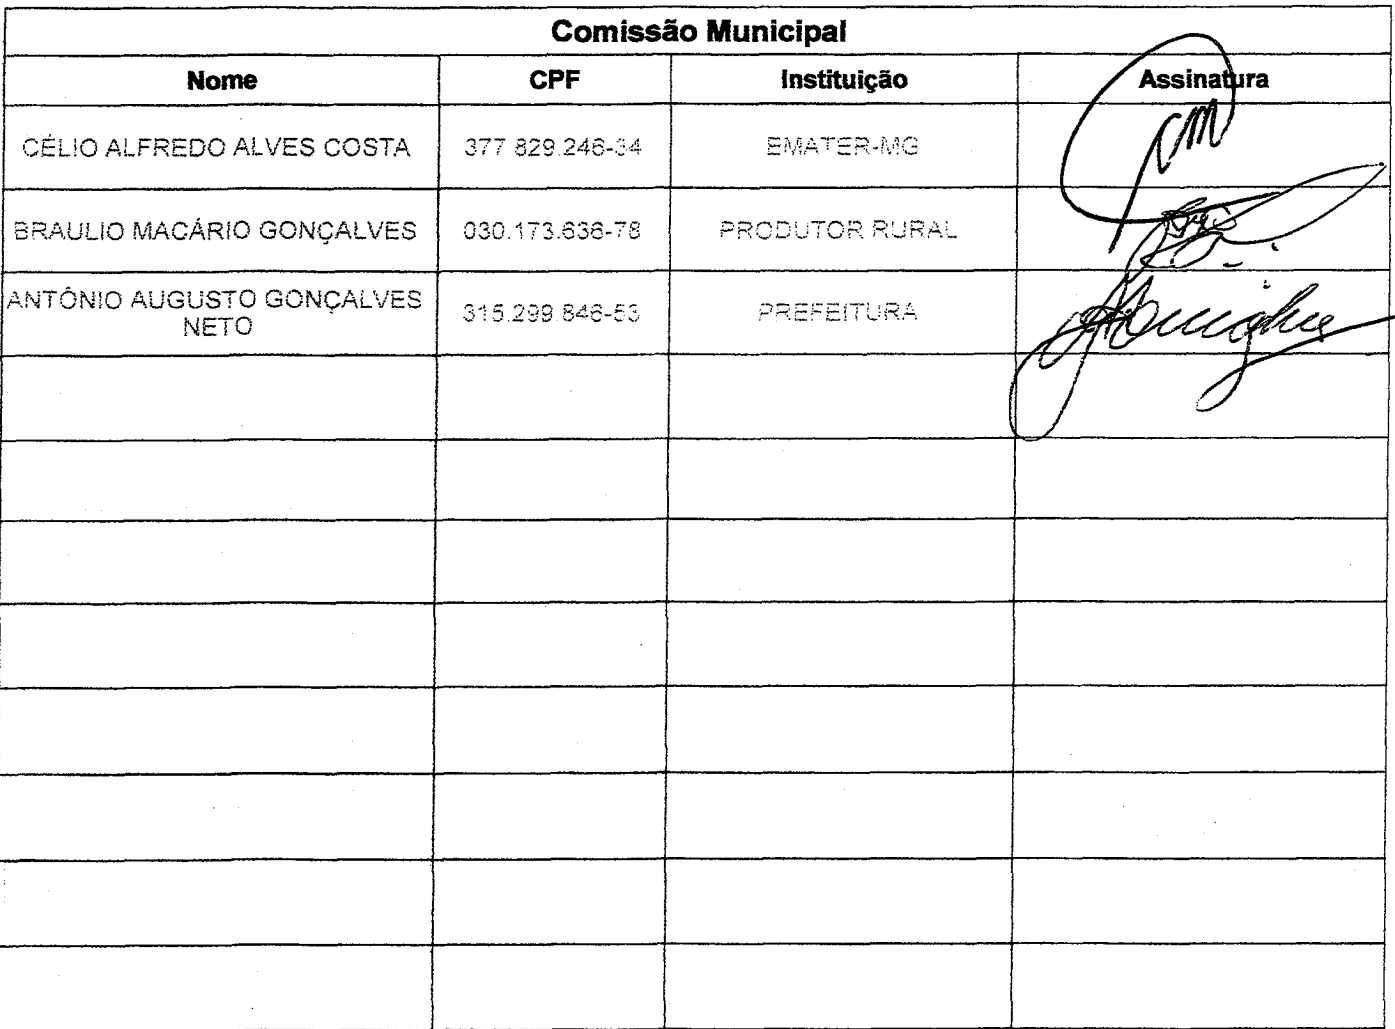 Comissão Municipal
Nome CPF Instituição Assinatura
CÉLIO ALFREDO ALVES COSTA 377.829.246-34 EMATER-MG
BRAULIO MACÁRIO GONÇALVES 030.173.636-78 PRODUTOR RURAL
ANTÔNIO AUGUSTO GONÇALVES
NETO 315.299.846-53 PREFEITURA